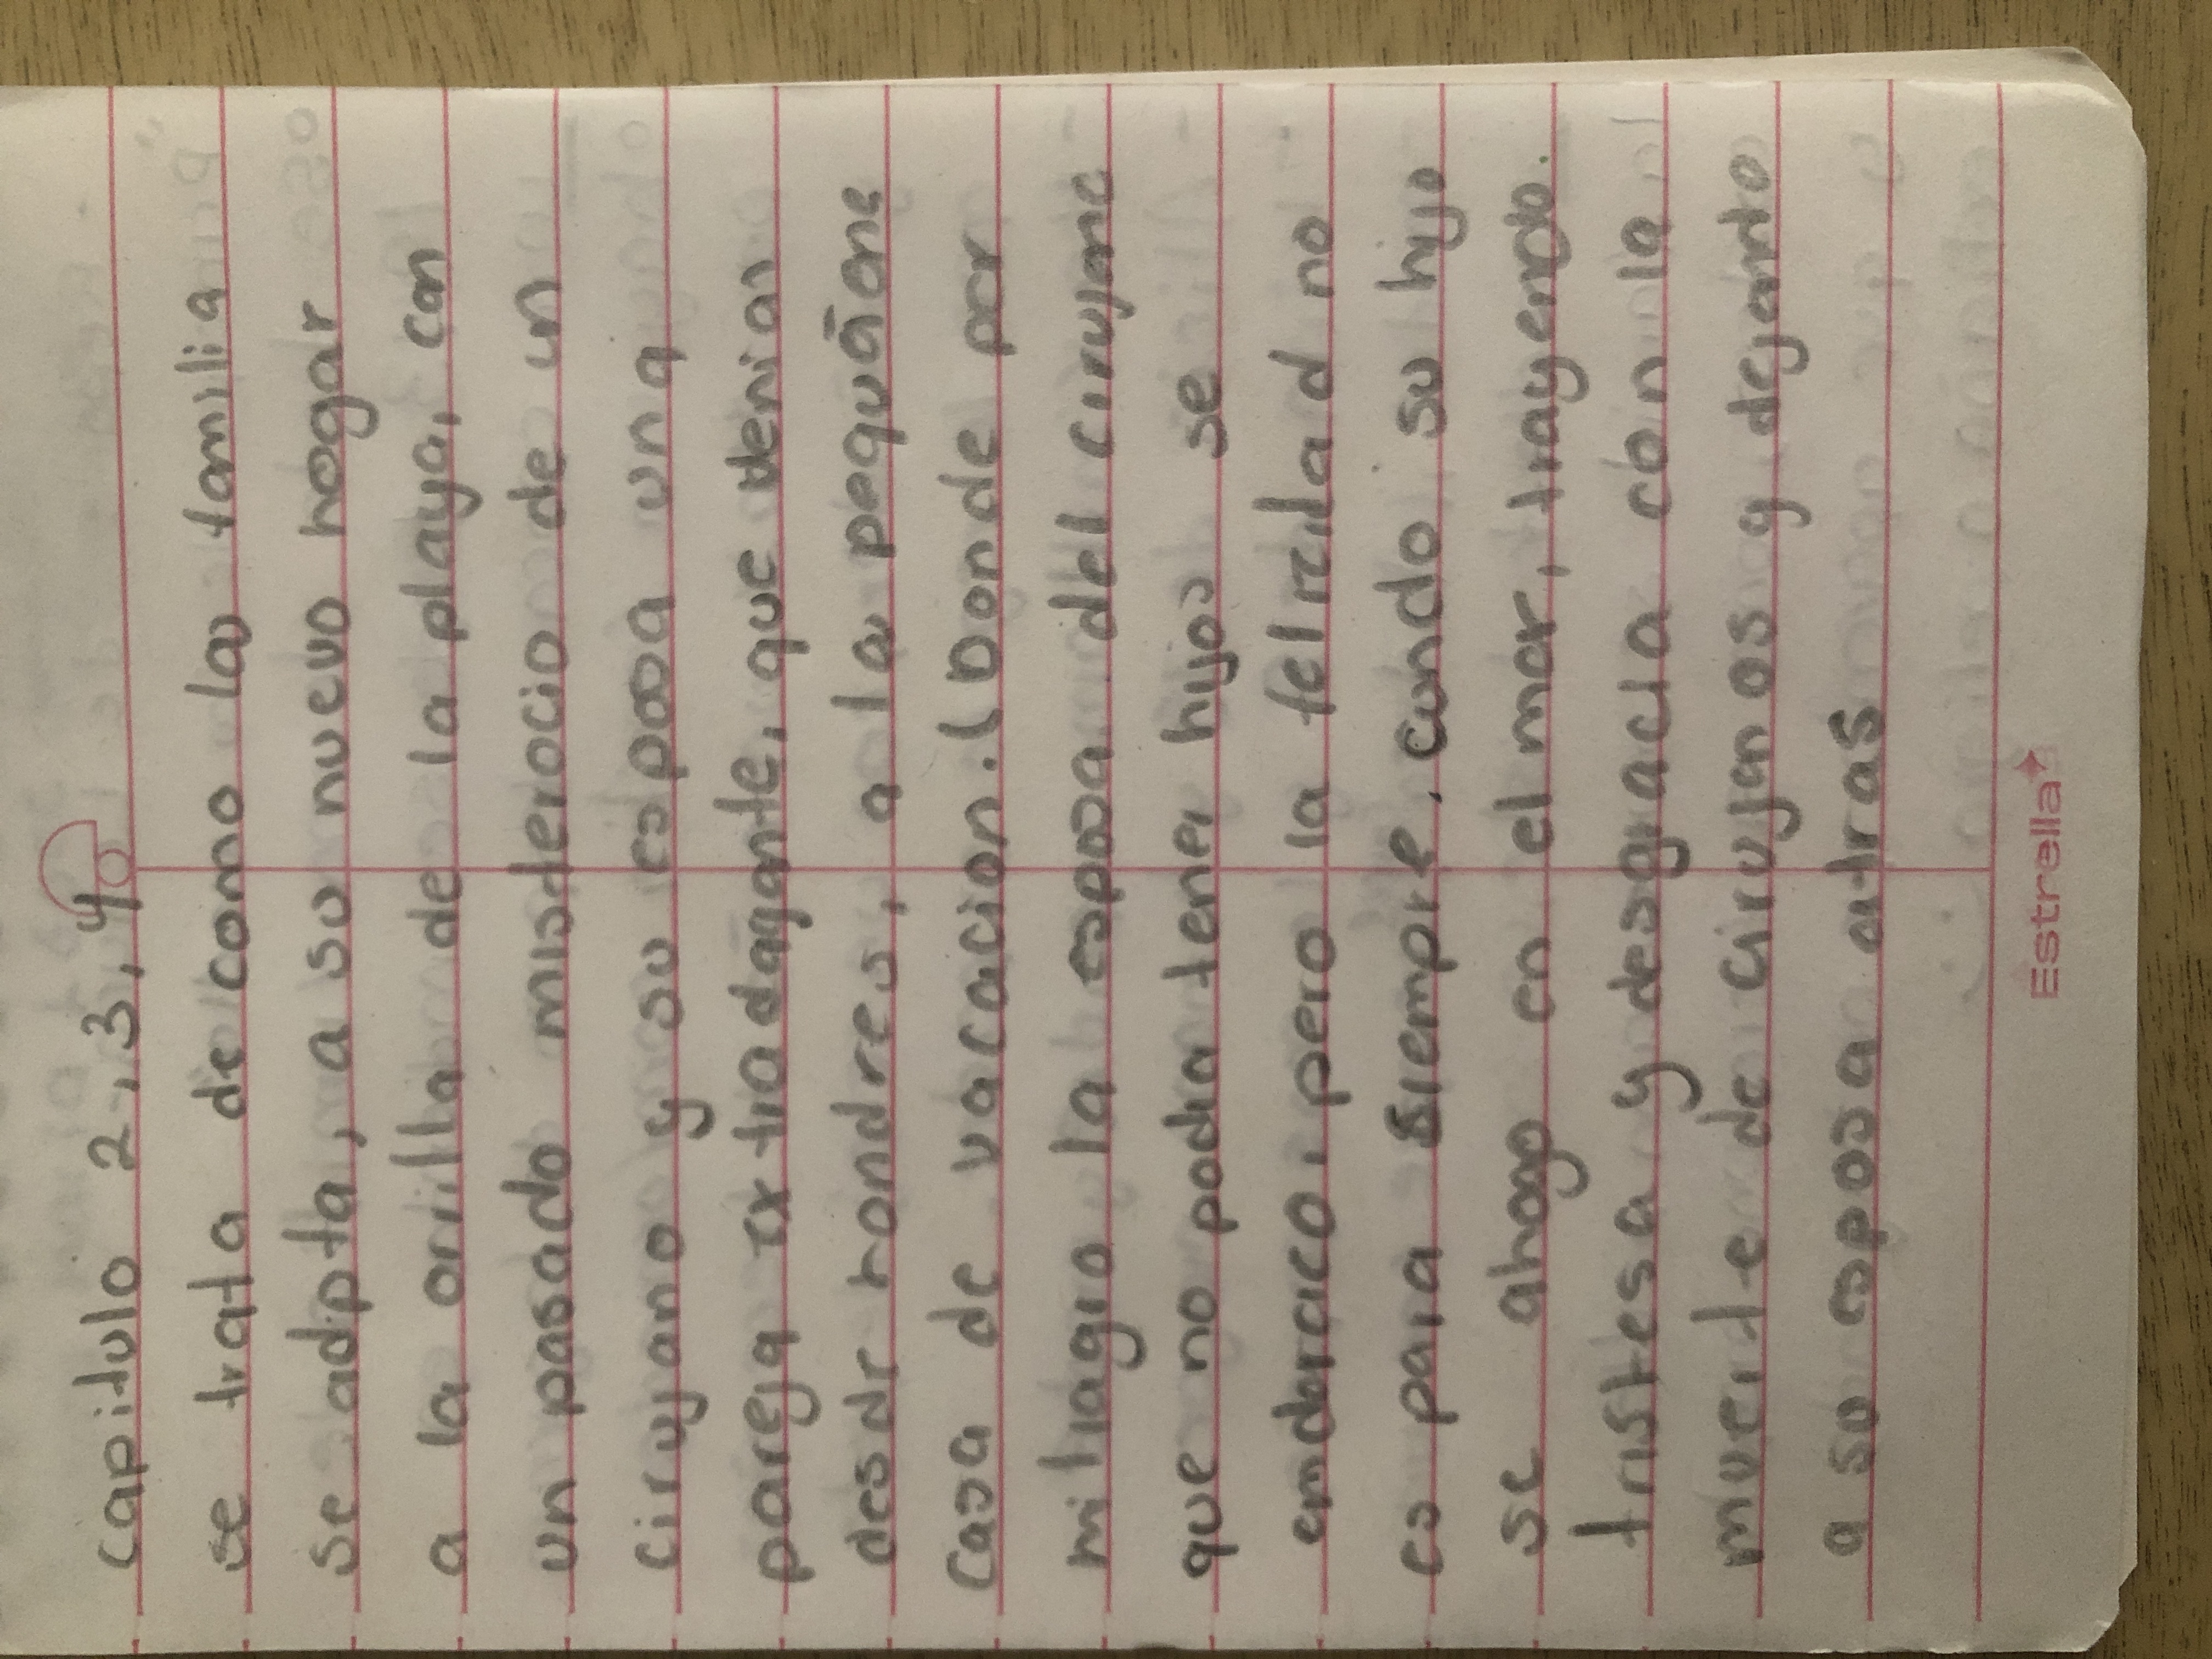 Capitulo 2,3,4
se trata de como la familia
se adapta, a su nuevo hogar
a la orilla de la playa, con
un pasado misterocio de un
cirujano y su esposa una
pareja extradagante, que venian
desde rondres, a la pequāene
casa de vacacion. (Donde por
milagro la esposa del cirujane
que no podia tener hijos se
embraco, pero la felicidad no
es para siempre. cundo su hijo
se ahogo en el mar, trayendo.
tristesa y desgracia con la
muerte de cirujanos y dejanto
a su esposa atras
Estrella